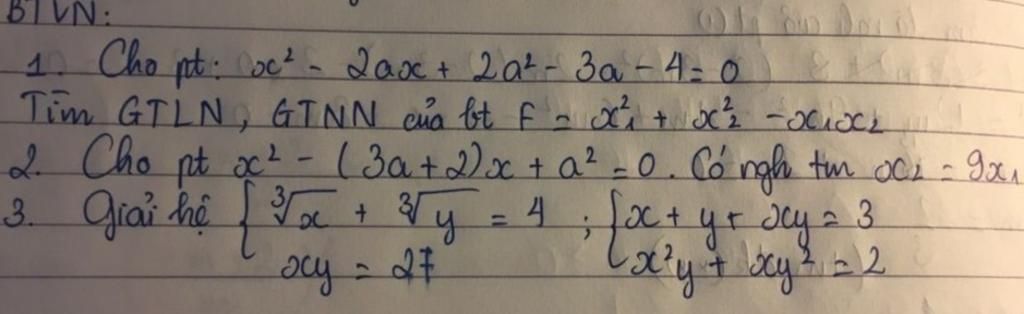 BTVN:
1. Cho pt: x² - 2ax + 2a² - 3a - 4 = 0
Tìm GTLN, GTNN của bt F = x₁² + x₂² - x₁x₂
2. Cho pt x² - (3a+2)x + a² = 0. Có ngh tm x₂ = 9x₁
3. Giải hệ { ∛x + ∛y = 4 ; { x + y + xy = 3
xy = 27 x²y + xy² = 2